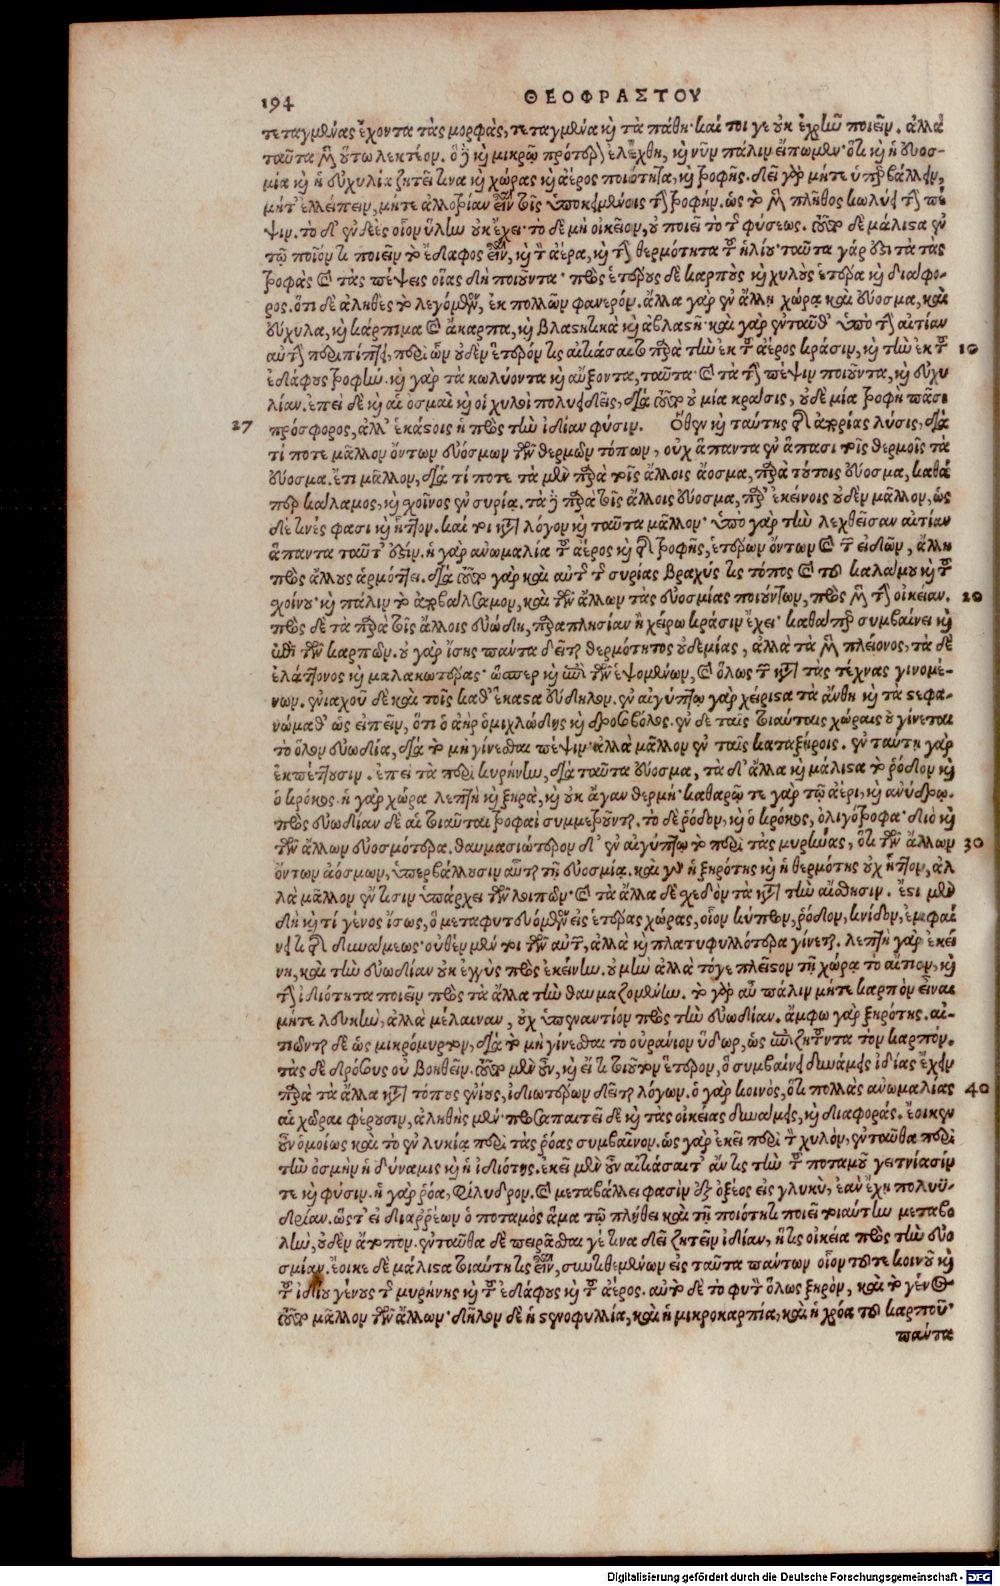 194 ΘΕΟΦΡΑΣΤΟΥ
τεταγμένας ἔχοντα τὰς μορφὰς, τεταγμένα καὶ τὰ πάθη· καί τοι γε οὐκ ἐχρῆν ποιεῖν. ἀλλὰ
ταῦτα μὲν οὕτω λεκτέον. ὃ δὲ καὶ μικρῷ πρότερον ἐλέχθη, καὶ νῦν πάλιν εἴπωμεν· ὅτι καὶ ἡ εὐοσ-
μία καὶ ἡ εὐχυλία ζητεῖ τινα καὶ χώρας καὶ ἀέρος ποιότητα, καὶ τροφῆς. δεῖ γὰρ μήτε ὑπερβάλλειν,
μήτ' ἐλλείπειν, μήτε ἀλλοτρίαν εἶναι τοῖς ὑποκειμένοις τὴν τροφήν. ὡς τὸ μὲν πλῆθος κωλύει τὴν πέ
ψιν. τὸ δ' ἐνδεὲς οἷον ὕλην οὐκ ἔχει· τὸ δὲ μὴ οἰκεῖον, οὐ ποιεῖ τὸ τῆς φύσεως. τοῦτο δὲ μάλιστα ἐν
τῷ ποῖόν τι ποιεῖν τὸ ἔδαφος εἶναι, καὶ τὸν ἀέρα, καὶ τὴν θερμότητα τοῦ ἡλίου· ταῦτα γάρ ἐστι τὰ τὰς
τροφὰς καὶ τὰς πέψεις οἵας δὴ ποιοῦντα· πρὸς ἑτέρους δὲ καρποὺς καὶ χυλοὺς ἕτερα καὶ διαφο-
ρος. ὅτι δὲ ἀληθὲς τὸ λεγόμενον, ἐκ πολλῶν φανερόν. ἄλλα γὰρ ἐν ἄλλῃ χώρᾳ καὶ εὔοσμα, καὶ
εὔχυλα, καὶ κάρπιμα καὶ ἄκαρπα, καὶ βλαστικὰ καὶ ἀβλαστῆ· καὶ γὰρ ἐνταῦθ' ὑπὸ τὴν αἰτίαν
αὐτὴν περιπίπτει, περὶ ὧν οὐδὲν ἕτερόν τις αἰτιάσαιτο παρὰ τὴν ἐκ τοῦ ἀέρος κράσιν, καὶ τὴν ἐκ τοῦ 10
ἐδάφους τροφήν. καὶ γὰρ τὰ κωλύοντα καὶ αὔξοντα, ταῦτα· καὶ τὰ τὴν πέψιν ποιοῦντα, καὶ εὐχυ
λίαν. ἐπεὶ δὲ καὶ αἱ ὀσμαὶ καὶ οἱ χυλοὶ πολυειδεῖς, διὰ τοῦτο οὐ μία κρᾶσις, οὐδὲ μία τροφὴ πᾶσι
27 πρόσφορος, ἀλλ' ἑκάστοις ἡ πρὸς τὴν ἰδίαν φύσιν. Ὅθεν καὶ ταύτης τῆς ἀπορίας λύσις, διὰ
τί ποτε μᾶλλον ὄντων εὐόσμων τῶν θερμῶν τόπων, οὐχ ἅπαντα ἐν ἅπασι τοῖς θερμοῖς τὰ
εὔοσμα. ἔτι μᾶλλον, διὰ τί ποτε τὰ μὲν παρὰ τοῖς ἄλλοις ἄοσμα, παρὰ τούτοις εὔοσμα, καθά
περ κάλαμος, καὶ σχοῖνος ἐν συρίᾳ. τὰ δὲ παρὰ τοῖς ἄλλοις εὔοσμα, παρ' ἐκείνοις οὐδὲν μᾶλλον, ὡς
δέ τινές φασι καὶ ἧττον. καί τοι κατὰ λόγον καὶ ταῦτα μᾶλλον· ὑπὸ γὰρ τὴν λεχθεῖσαν αἰτίαν
ἅπαντα ταῦτ' ἐστίν. ἡ γὰρ ἀνωμαλία τοῦ ἀέρος καὶ τῆς τροφῆς, ἑτέρων ὄντων καὶ τῶν εἰδῶν, ἄλλη
πρὸς ἄλλους ἁρμόττει. διὰ τοῦτο γὰρ καὶ αὐτῆς τῆς συρίας βραχύς τις τόπος καὶ τοῦ καλάμου καὶ τοῦ
σχοίνου· καὶ πάλιν τὸ ἀποβάλσαμον, καὶ τῶν ἄλλων τὰς εὐοσμίας ποιούντων, πρὸς μὲν τὴν οἰκείαν. 20
πρὸς δὲ τὰ παρὰ τοῖς ἄλλοις εὐώδη, παραπλησίαν ἢ χείρω κράσιν ἔχει· καθάπερ συμβαίνει καὶ
ἐπὶ τῶν καρπῶν. οὐ γὰρ ἴσης πάντα δεῖται θερμότητος οὐδεμίας, ἀλλὰ τὰ μὲν πλείονος, τὰ δὲ
ἐλάττονος καὶ μαλακωτέρας· ὥσπερ καὶ ἐπὶ τῶν ἑψομένων, καὶ ὅλως τῶν κατὰ τὰς τέχνας γινομέ-
νων. ἐνιαχοῦ δὲ καὶ τοῖς καθ' ἕκαστα εὔδηλον. ἐν αἰγύπτῳ γὰρ χείριστα τὰ ἄνθη καὶ τὰ στεφα-
νώμαθ' ὡς εἰπεῖν, ὅτι ὁ ἀὴρ ὁμιχλώδης καὶ δροσοβόλος. ἐν δὲ ταῖς τοιαύταις χώραις οὐ γίνεται
τὸ ὅλον εὐωδία, διὰ τὸ μὴ γίνεσθαι πέψιν· ἀλλὰ μᾶλλον ἐν ταῖς καταξήροις. ἐν ταύτῃ γὰρ
ἐκπέττουσιν. ἐπεὶ τὰ περὶ κυρήνην, διὰ ταῦτα εὔοσμα, τὰ δ' ἄλλα καὶ μάλιστα τὸ ῥόδον καὶ
ὁ κρόκος. ἡ γὰρ χώρα λεπτὴ καὶ ξηρὰ, καὶ οὐκ ἄγαν θερμή· καθαρῷ τε γὰρ τῷ ἀέρι, καὶ ἀνύδρῳ.
πρὸς εὐωδίαν δὲ αἱ τοιαῦται τροφαὶ συμμετροῦνται. τὸ δὲ ῥόδον, καὶ ὁ κρόκος, ὀλιγότροφα· διὸ καὶ
τῶν ἄλλων εὐοσμότερα. θαυμασιώτερον δ' ἐν αἰγύπτῳ τὸ περὶ τὰς μυρίνας, ὅτι τῶν ἄλλων 30
ὄντων ἀόσμων, ὑπερβάλλουσιν αὗται τῇ εὐοσμίᾳ. καὶ γὰρ ἡ ξηρότης καὶ ἡ θερμότης οὐχ ἧττον, ἀλ
λὰ μᾶλλον ἔν τισιν ὑπάρχει τῶν λοιπῶν· καὶ τὰ ἄλλα δὲ σχεδὸν τὰ κατὰ τὴν αἴσθησιν. ἔστι μὲν
δὴ καὶ τί γένος ἴσως, ὁ μεταφυτευόμενον εἰς ἑτέρας χώρας, οἷον κύπρον, ῥόδον, κνίδον, ἐμφαί
νει τι τῆς δυνάμεως· οὐθὲν μέν τοι τῶν αὐτῶν, ἀλλὰ καὶ πλατυφυλλότερα γίνεται. λεπτὴ γὰρ ἐκεί
νη, καὶ τὴν εὐωδίαν οὐκ ἐγγὺς πρὸς ἐκείνην. οὐ μὴν ἀλλὰ τόγε πλεῖστον τῇ χώρᾳ τὸ αἴτιον, καὶ
τὴν ἰδιότητα ποιεῖν πρὸς τὰ ἄλλα τὴν θαυμαζομένην. τὸ γὰρ αὖ πάλιν μήτε καρπὸν εἶναι
μήτε λευκὴν, ἀλλὰ μέλαιναν, οὐχ ὑπεναντίον πρὸς τὴν εὐωδίαν. ἄμφω γὰρ ξηρότης. αἰ-
τιῶνται δὲ ὡς μικρόμυρτον, διὰ τὸ μὴ γίνεσθαι τὸ οὐράνιον ὕδωρ, ὡς ἐπιζητοῦντα τὸν καρπόν.
τὰς δὲ δρόσους οὐ βοηθεῖν. τοῦτο μὲν οὖν, καὶ εἴ τι τοιοῦτον ἕτερον, ὃ συμβαίνει δυνάμεις ἰδίας ἔχειν
παρὰ τὰ ἄλλα κατὰ τόπους ἐνίους, ἰδιωτέρων δεῖται λόγων. ὁ γὰρ κοινὸς, ὅτι πολλὰς ἀνωμαλίας 40
αἱ χῶραι φέρουσιν, ἀληθὴς μὲν· προσαπαιτεῖ δὲ καὶ τὰς οἰκείας δυνάμεις, καὶ διαφοράς. ἔοικεν
οὖν ὁμοίως καὶ τὸ ἐν λυκίᾳ περὶ τὰς ῥόας συμβαῖνον. ὡς γὰρ ἐκεῖ περὶ τὸν χυλὸν, ἐνταῦθα περὶ
τὴν ὀσμὴν ἡ δύναμις καὶ ἡ ἰδιότης. ἐκεῖ μὲν οὖν αἰτιάσαιτ' ἄν τις τὴν τοῦ ποταμοῦ γειτνίασίν
τε καὶ φύσιν. ἡ γὰρ ῥόα, φίλυδρον. καὶ μεταβάλλει φασὶν ἐξ ὀξέος εἰς γλυκὺ, ἐὰν ἔχῃ πολυϋ-
δρίαν. ὥστ' εἰ διαρρέων ὁ ποταμὸς ἅμα τῷ πλήθει καὶ τῇ ποιότητι ποιεῖ τοιαύτην μεταβο
λὴν, οὐδὲν ἄτοπον. ἐνταῦθα δὲ πειρᾶσθαι γε τινα δεῖ ζητεῖν ἰδίαν, ἥτις οἰκεία πρὸς τὴν εὐο
σμίαν. ἔοικε δὲ μάλιστα τοιαύτη τις εἶναι, συντιθεμένων εἰς ταῦτα πάντων οἷον τοῦτε κοινοῦ καὶ
τοῦ ἰδίου γένους τῆς μυρήνης καὶ τοῦ ἐδάφους καὶ τοῦ ἀέρος. αὐτό δὲ τὸ φυτὸν ὅλως ξηρὸν, καὶ τὸ γένος
τοῦτο μᾶλλον τῶν ἄλλων· δῆλον δὲ ἡ στενοφυλλία, καὶ ἡ μικροκαρπία, καὶ ἡ χρόα τοῦ καρποῦ·
πάντα
Digitalisierung gefördert durch die Deutsche Forschungsgemeinschaft - DFG